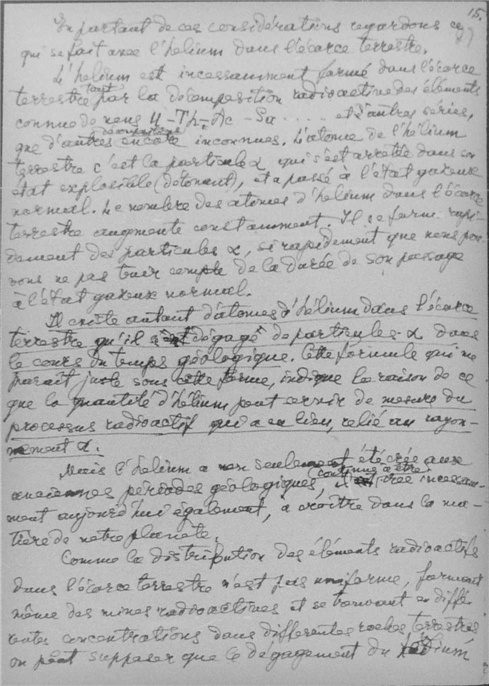 15.
En partant de ces considérations regardons ce
qui se fait avec l'hélium dans l'écorce terrestre.
L'hélium est incessamment formé dans l'écorce
terrestre tant par la décomposition radioactive des éléments
connue de nous U-Th-Ac- .... et d'autres séries,
que d'autres décompositions encore inconnues. L'atome de l'hélium
terrestre c'est la particule α qui s'est arretée dans son
état explosible (détonant), et a passé à l'état gaxeux
normal. Le nombre des atomes d'hélium dans l'écorce
terrestre augmente constamment. Il se forme rapi-
dement des particules α, si rapidement que nous pou-
vons ne pas tenir compte de la durée de son passage
à l'état gaxeux normal.
Il existe autant d'atomes d'hélium dans l'écorce
terrestre qu'il s'est dégagé de particules-α dans
le cours du temps géologique. Cette formule qui ne
parait juste sous cette forme, indique la raison de ce
que la quantité d'hélium peut servir de mesure du
processus radioactif qui a eu lieu, relié au rayon-
nement α.
Mais l'hélium a non seulement été créé aux
anciennes périodes géologiques, continue à être créé incessam-
ment aujourd'hui également, à croître dans la ma-
tière de notre planète.
Comme la distribution des éléments radioactifs
dans l'écorce terrestre n'est pas uniforme, formant
même des mines radioactives et se trouvant en diffé-
rentes concentrations dans differentes roches terrestres
on peut supposer que le dégagement du